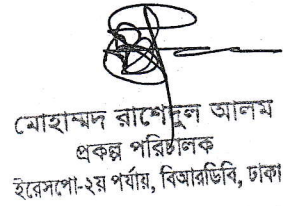 মোহাম্মদ রাশেদুল আলম
প্রকল্প পরিচালক
ইরেসপো-২য় পর্যায়, বিআরডিবি, ঢাকা